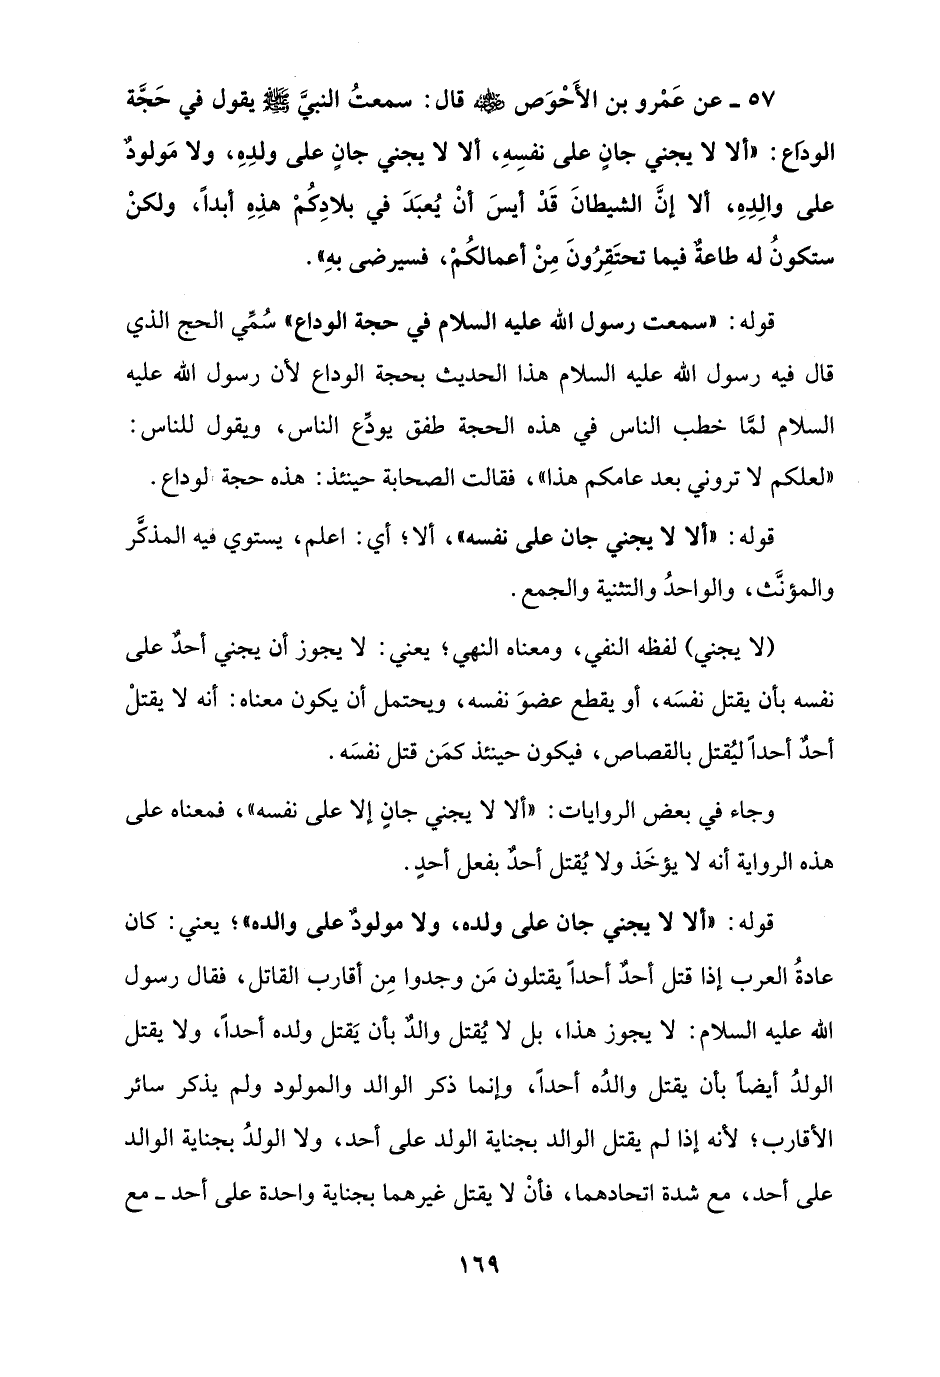 ٥٧ ـ عن عَمْرو بن الأَحْوَص ﷺ قال: سمعتُ النبيَّ ﷺ يقول في حَجَّة
الوداع: «ألا لا يجني جانٍ على نفسِهِ، ألا لا يجني جانٍ على ولدِهِ، ولا مَولودٌ
على والِدِهِ، ألا إنَّ الشيطانَ قَدْ أيسَ أنْ يُعبَدَ في بلادِكُمْ هذِهِ أبداً، ولكنْ
ستكونُ له طاعةٌ فيما تحتَقِرُونَ مِنْ أعمالكُمْ، فسيرضى بهِ».
قوله: «سمعت رسول الله عليه السلام في حجة الوداع» سُمِّي الحج الذي
قال فيه رسول الله عليه السلام هذا الحديث بحجة الوداع لأن رسول الله عليه
السلام لمَّا خطب الناس في هذه الحجة طفق يودِّع الناس، ويقول للناس:
«لعلكم لا تروني بعد عامكم هذا»، فقالت الصحابة حينئذ: هذه حجة لوداع.
قوله: «ألا لا يجني جان على نفسه»، ألا؛ أي: اعلم، يستوي فيه المذكَّر
والمؤنَّث، والواحدُ والتثنية والجمع.
(لا يجني) لفظه النفي، ومعناه النهي؛ يعني: لا يجوز أن يجني أحدٌ على
نفسه بأن يقتل نفسَه، أو يقطع عضوَ نفسه، ويحتمل أن يكون معناه: أنه لا يقتلْ
أحدٌ أحداً ليُقتل بالقصاص، فيكون حينئذ كمَن قتل نفسَه.
وجاء في بعض الروايات: «ألا لا يجني جانٍ إلا على نفسه»، فمعناه على
هذه الرواية أنه لا يؤخَذ ولا يُقتل أحدٌ بفعل أحدٍ.
قوله: «ألا لا يجني جان على ولده، ولا مولودٌ على والده»؛ يعني: كان
عادةُ العرب إذا قتل أحدٌ أحداً يقتلون مَن وجدوا مِن أقارب القاتل، فقال رسول
الله عليه السلام: لا يجوز هذا، بل لا يُقتل والدٌ بأن يَقتل ولده أحداً، ولا يقتل
الولدُ أيضاً بأن يقتل والدُه أحداً، وإنما ذكر الوالد والمولود ولم يذكر سائر
الأقارب؛ لأنه إذا لم يقتل الوالد بجناية الولد على أحد، ولا الولدُ بجناية الوالد
على أحد، مع شدة اتحادهما، فأنْ لا يقتل غيرهما بجناية واحدة على أحد ـ مع
١٦٩